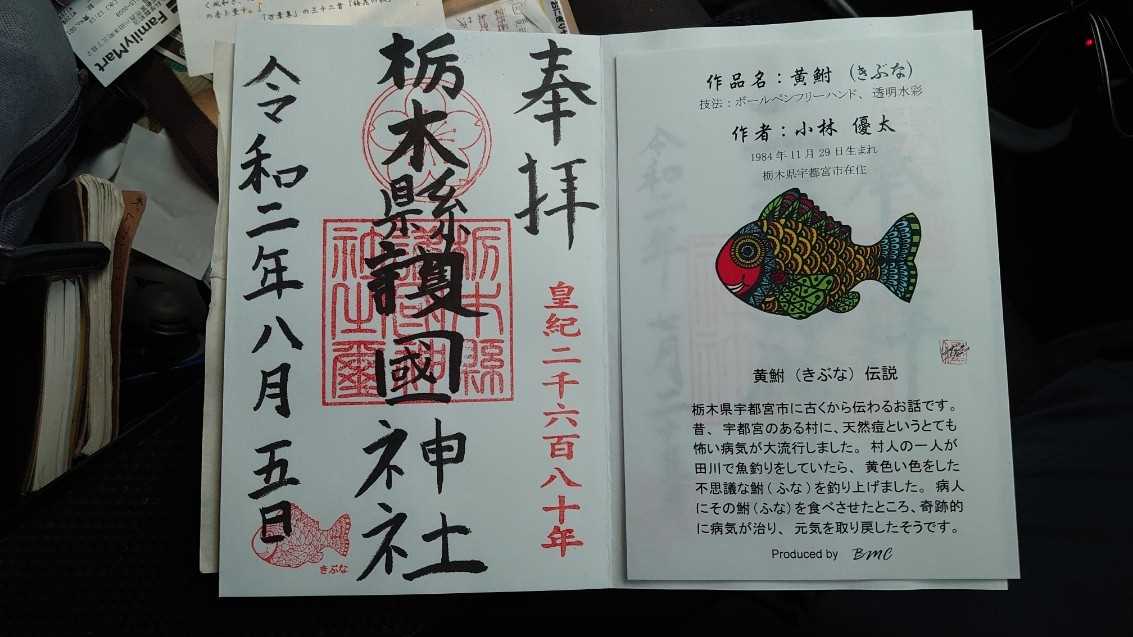 FamilyMart
「万葉集」の三十二首「梅花の
奉拝
皇紀二千六百八十年
栃木縣護國神社
栃木縣護國神社之璽
令和二年八月五日
きぶな
作品名：黄鮒（きぶな）
技法：ボールペンフリーハンド、透明水彩
作者：小林 優太
1984年11月29日生まれ
栃木県宇都宮市在住
黄鮒（きぶな）伝説
栃木県宇都宮市に古くから伝わるお話です。
昔、宇都宮のある村に、天然痘というとても
怖い病気が大流行しました。村人の一人が
田川で魚釣りをしていたら、黄色い色をした
不思議な鮒（ふな）を釣り上げました。病人
にその鮒（ふな）を食べさせたところ、奇跡的
に病気が治り、元気を取り戻したそうです。
Produced by BMC